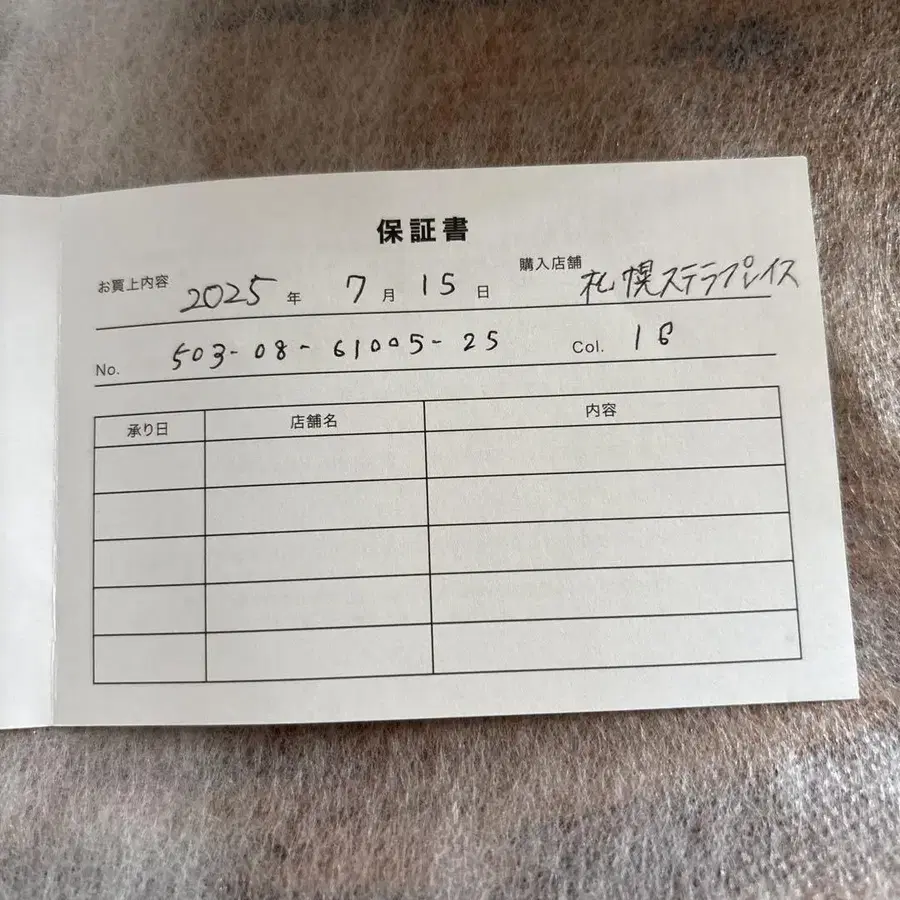 保証書
お買上内容 2025年 7月 15日 購入店舗 札幌ステラプレイス
No. 503-08-61005-25 Col. 18
承り日 店舗名 内容